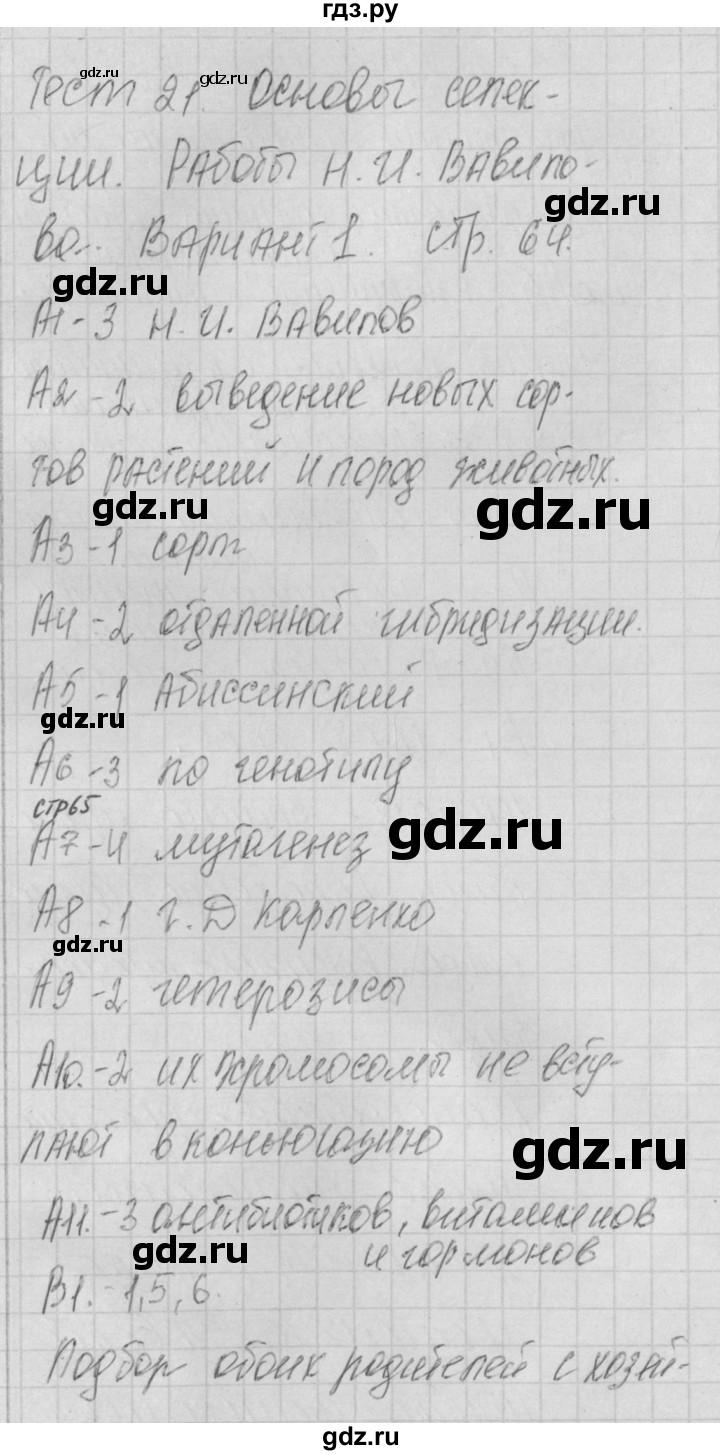 гдз.ру
gdz.ru
gdz.ru
Тест 21. Основы селек-
ции. Работы Н. И. Вавило-
gdz.ru
ва. Вариант 1. стр. 64.
gdz.ru
А1-3 Н. И. Вавилов
А2-2 выведение новых сор-
тов растений и пород животных.
gdz.ru
gdz.ru
А3-1 сорт
А4-2 отдаленной гибридизации.
А5-1 Абиссинский
gdz.ru
А6-3 по генотипу
стр65
gdz.ru
А7-4 мутагенез
А8-1 Г. Д Карпенко
gdz.ru
А9-2 гетерозисы
А10.-2 их хромосомы не всту-
пают в конъюгацию
gdz.ru
А11.-3 антибиотиков, витаминов
и гормонов
gdz.ru
В1.-1,5,6.
Подбор обоих родителей с хозяй-
gdz.ru
гдз.ру